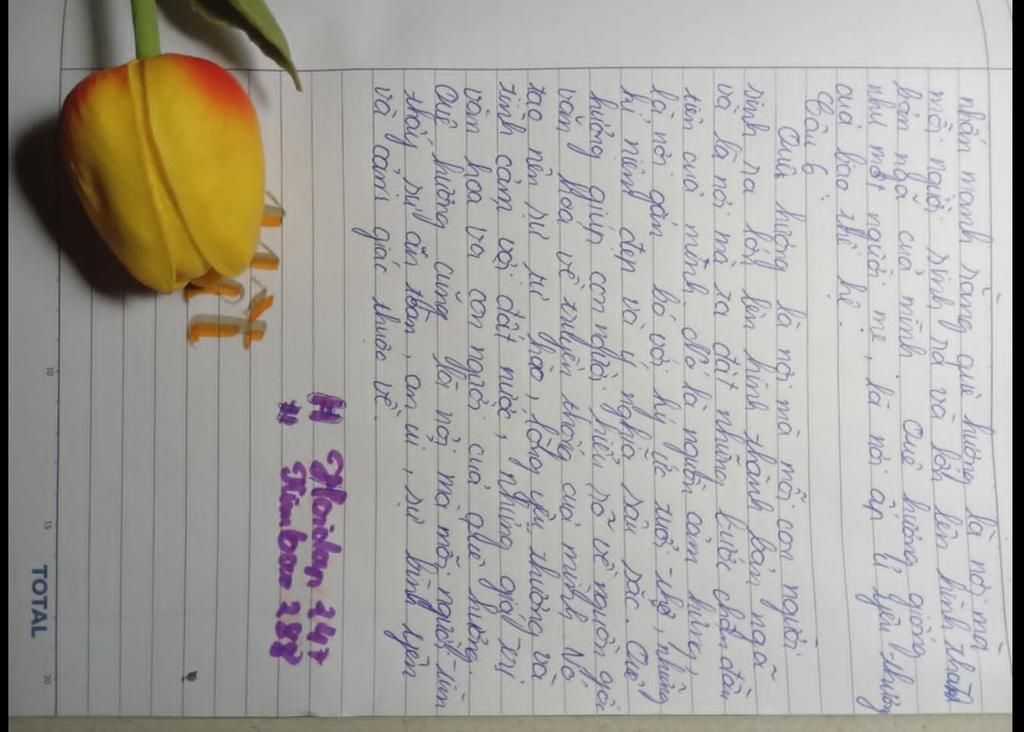 nhấn mạnh rằng quê hương là nơi mà
mỗi người sinh ra và lớn lên hình thành
bản ngã của mình. Quê hương giống
như một người mẹ, là nơi ấp ủ yêu thương
của bao thế hệ.
Câu 6:
Quê hương là nơi mà mỗi con người
sinh ra lớn lên hình thành bản ngã
và là nơi mà ta đặt những bước chân đầu
tiên của mình. Đó là nguồn cảm hứng,
là nơi gắn bó với ký ức tuổi thơ, những
kỉ niệm đẹp và ý nghĩa sâu sắc. Quê
hương giúp con người hiểu rõ về nguồn gốc
văn hoá về truyền thống của mình. Nó
tạo nên sự tự hào, lòng yêu thương và
tình cảm với đất nước, những giá trị
văn hoá và con người của quê hương.
Quê hương cũng là nơi mà mỗi người tìm
thấy sự an toàn, an ủi, sự bình yên
và cảm giác thuộc về.
# Hoidap 247
# Timban 288
TOTAL
10
15
20